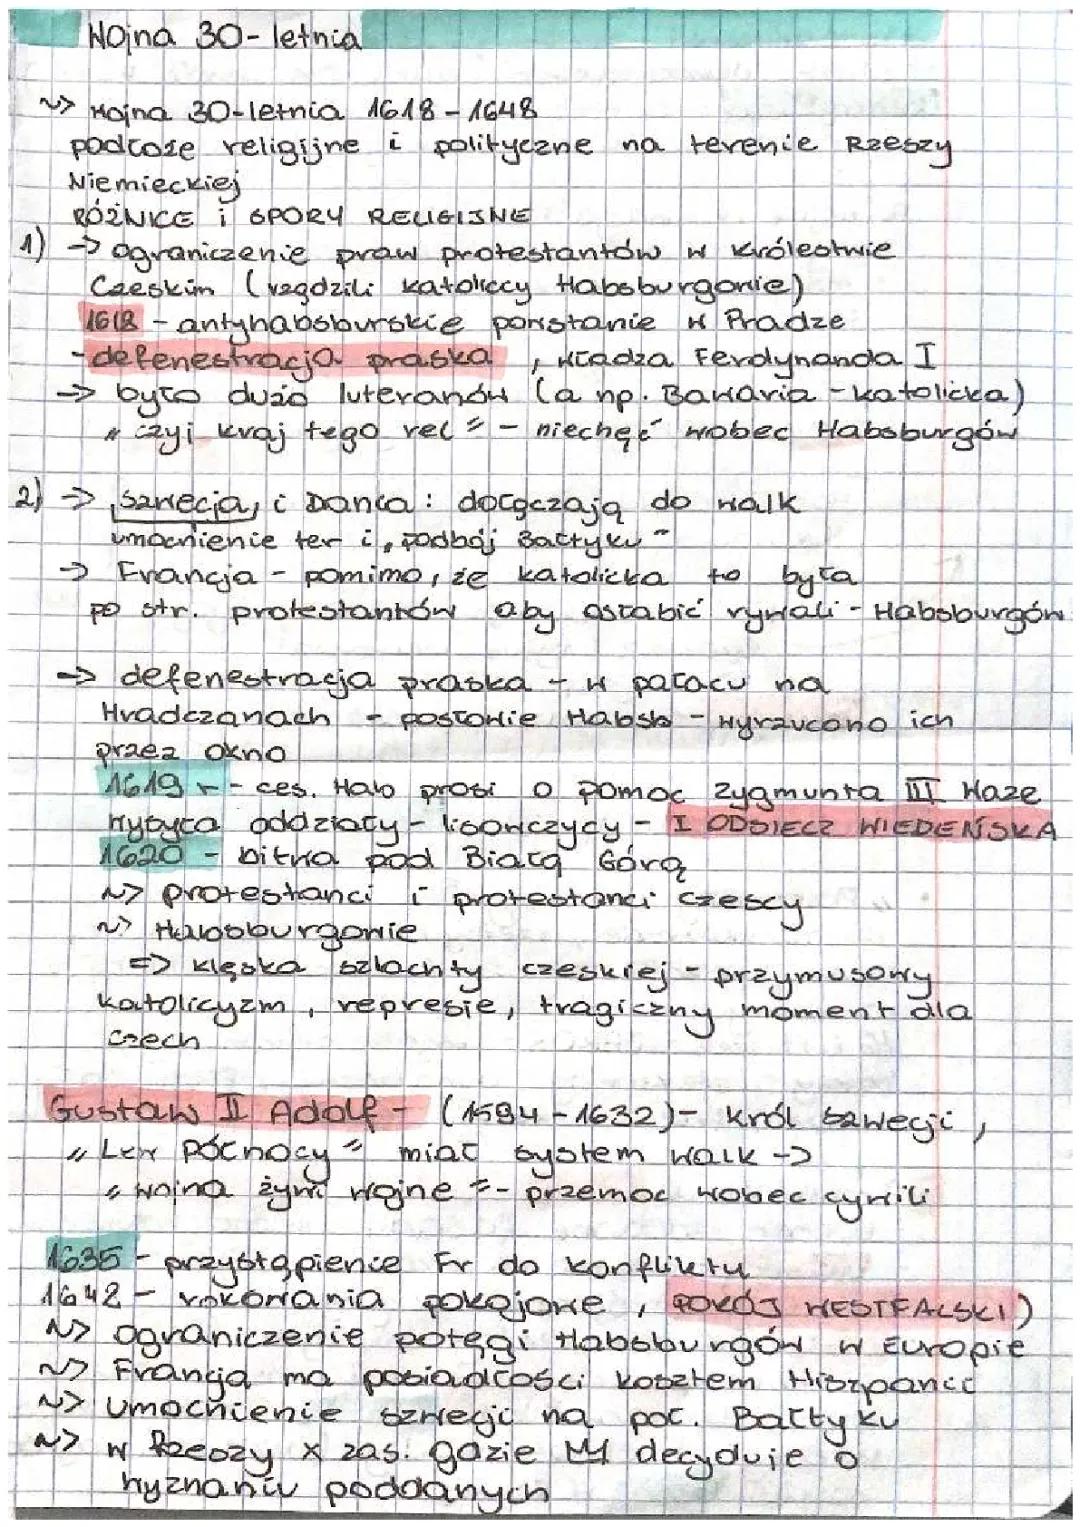 Wojna 30-letnia
~> Wojna 30-letnia 1618-1648
podłoże religijne i polityczne na terenie Rzeszy
Niemieckiej
RÓŻNICE i SPORY RELIGIJNE
1) -> ograniczenie praw protestantów w Królestwie
Czeskim (rządzili katoliccy Habsburgowie)
1618 - antyhabsburskie powstanie w Pradze
- defenestracja praska, władza Ferdynanda I
-> było dużo luteranów (a np. Bawaria - katolicka)
"czyj kraj tego rel" - niechęć wobec Habsburgów
2) -> Szwecja, i Dania: dołączają do walk
umocnienie ter i "podbój Bałtyku"
-> Francja - pomimo, że katolicka to była
po str. protestantów aby osłabić rywali - Habsburgów
-> defenestracja praska - w pałacu na
Hradczanach - posłowie Habsb - wyrzucono ich
przez okno
1619 r - ces. Hab prosi o pomoc Zygmunta III Wazę
wybyła oddziały - lisowczycy - I ODSIECZ WIEDEŃSKA
1620 - bitwa pod Białą Górą
~> protestanci i protestanci czescy
~> Habsburgowie
=> klęska szlachty czeskiej - przymusowy
katolicyzm, represie, tragiczny moment dla
Czech
Gustaw II Adolf - (1594-1632) - król Szwecji,
"Lew Północy" miał system walk ->
"wojna żywi wojnę" - przemoc wobec cywili
1635 - przystąpienie Fr do konfliktu
1642 - rokowania pokojowe, POKÓJ WESTFALSKI)
~> ograniczenie potęgi Habsburgów w Europie
~> Francja ma posiadłości kosztem Hiszpanii
~> umocnienie Szwecji na poł. Bałtyku
~> w Rzeszy x zas. gdzie decyduje o
wyznaniu poddanych